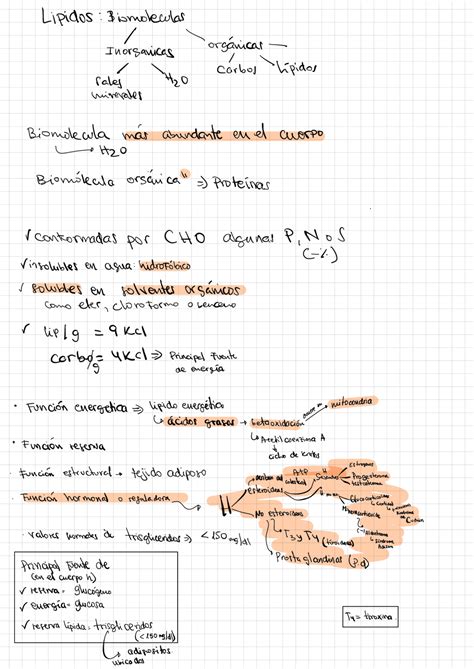 Lípidos: Biomoleculas
Inorganicas
orgánicas
sales
minerales
H2O
Carbos
Lípidos
Biomolecula más abundante en el cuerpo
H2O
Biomólecula orgánica " => Proteínas
✓ conformadas por CHO algunas P, N o S
(-%)
✓ insolubles en agua: hidrofóbico
✓ solubles en solventes orgánicos
como eter, cloroformo o benceno
✓ lip/g = 9 Kcl
carbo/g = 4Kcl => Principal fuente
de energía
• Función energetica => lipido energético
ácidos grasos → betaoxidación → mitocondria
Acetil coenzima A
ciclo de krebs
• Función reserva
• Función estructural → tejido adiposo
• Función hormonal o reguladora
H
esteroideas
derivan del colesterol
No esteroideas
Estrogenos
Progesterona
testosterona
T3 y T4 (tiroideas)
Prostaglandinas
• valores normales de trigliceridos => <150 mg/dl
Principal fuente de
(en el cuerpo h)
✓ reserva = glucógeno
✓ energía = glucosa
✓ reserva lipida = trigliceridos
(<150mg/dl)
adipositos
ubicados
T4 = tiroxina